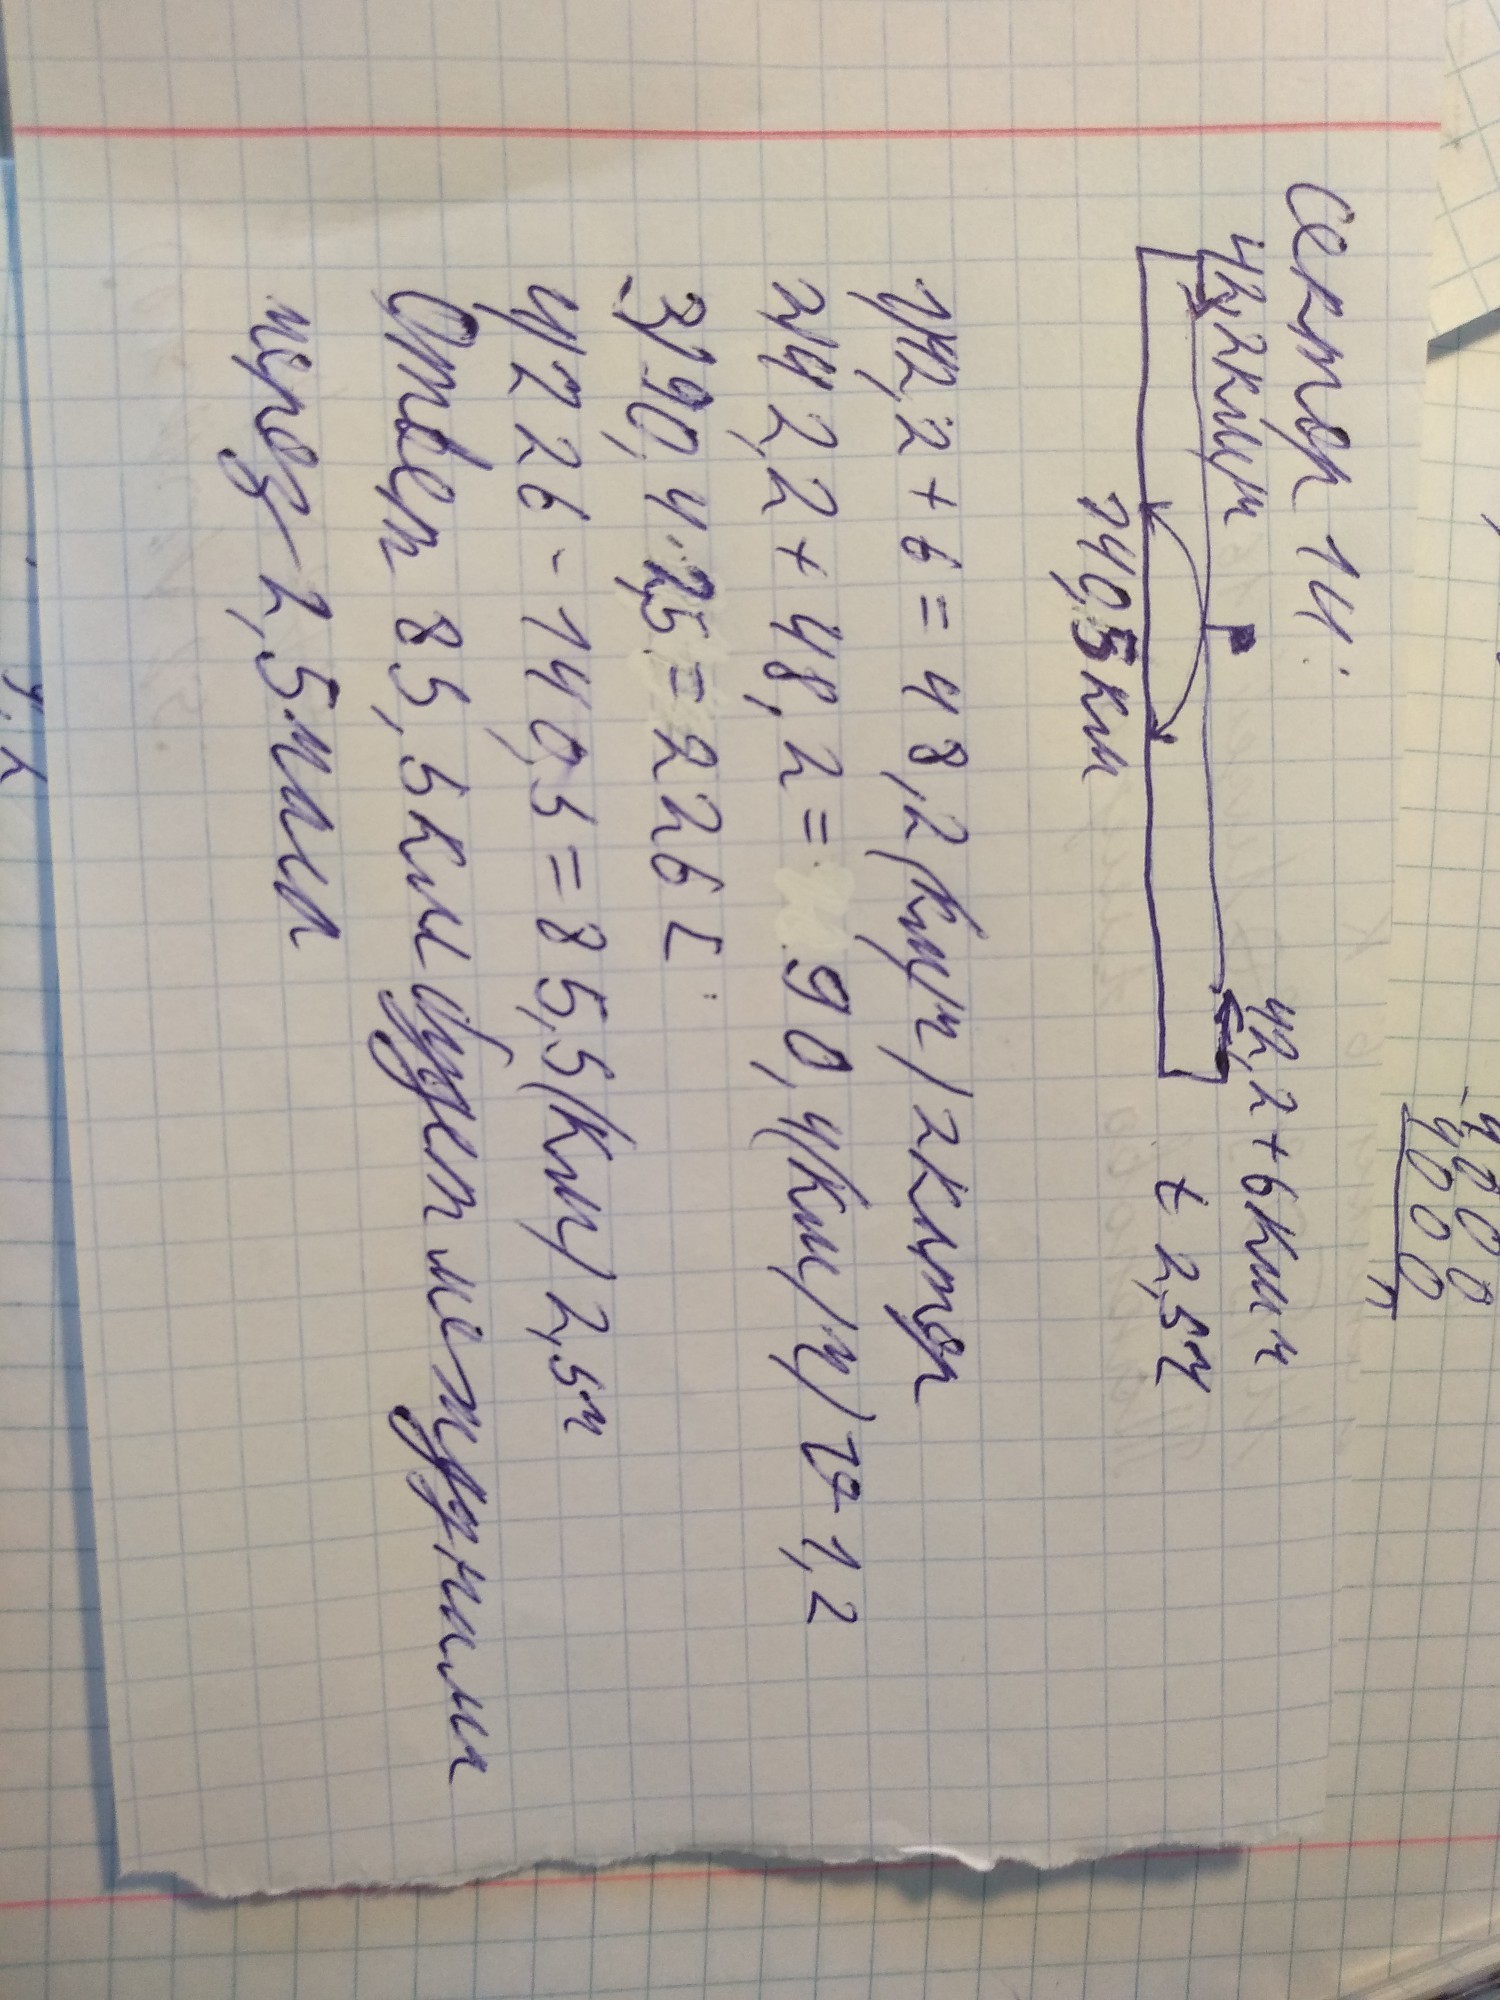 Сектор 14:
42,2км/ч 42,2+6км ч
140,5км t 2,5ч
1)42,2+6=48,2(км/ч)2ктор
2)42,2+48,2=90,4(км/ч)V1,2
3)90,4·2,5=226
4)226-140,5=85,5(км)2,5ч
Ответ 85,5км будет между ними
через 2,5
4000
4000